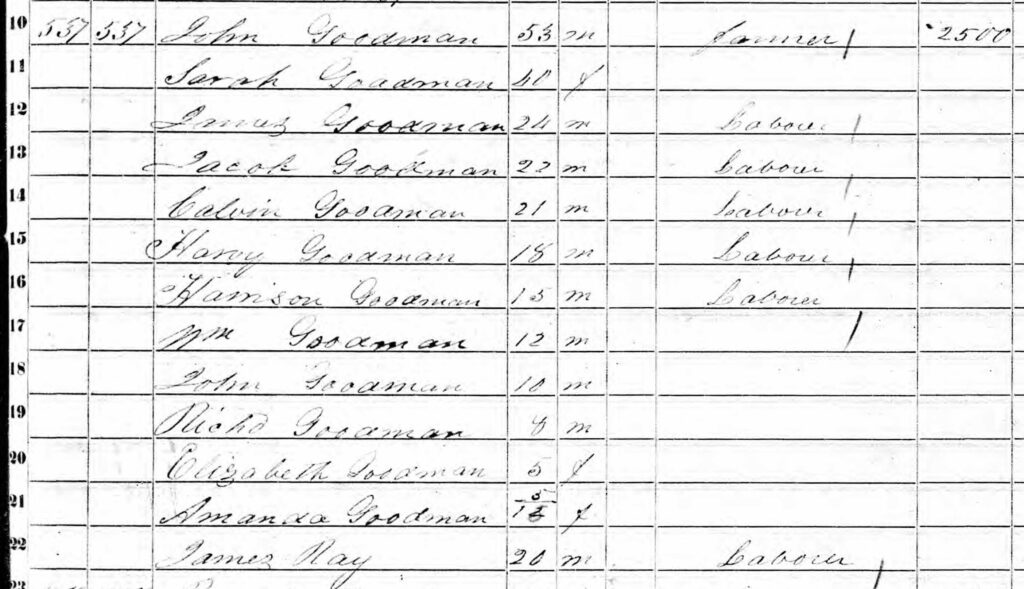 10 557 557 John Goodman 53 m farmer 2500
11 Sarah Goodman 40 f
12 James Goodman 24 m Labourer
13 Jacob Goodman 22 m Labourer
14 Calvin Goodman 21 m Labourer
15 Harvy Goodman 18 m Labourer
16 Harrison Goodman 15 m Labourer
17 Wm Goodman 12 m
18 John Goodman 10 m
19 Richd Goodman 8 m
20 Elizabeth Goodman 5 f
21 Amanda Goodman 5/12 f
22 James Ray 20 m Labourer
23